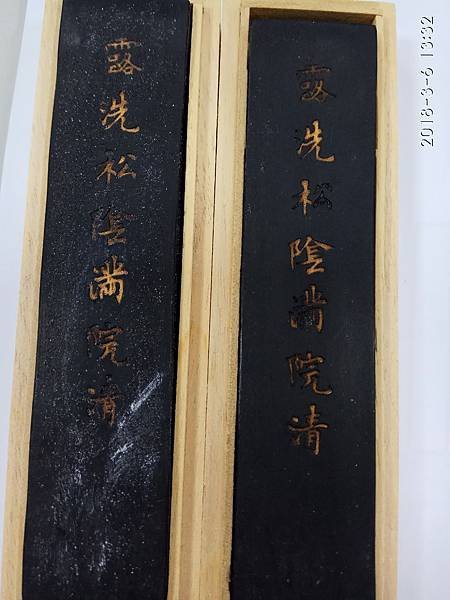 露洗松陰滿院清
露洗松陰滿院清
2018-3-6 13:32